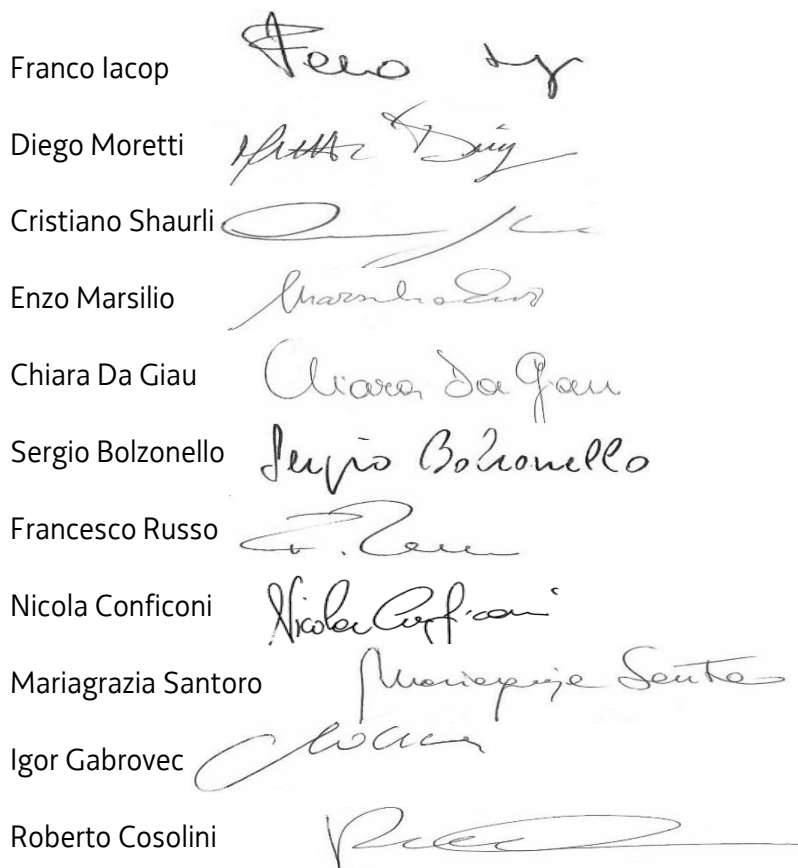 Franco Iacop
Diego Moretti
Cristiano Shaurli
Enzo Marsilio
Chiara Da Giau Chiara Da Giau
Sergio Bolzonello Sergio Bolzonello
Francesco Russo
Nicola Conficoni Nicola Conficoni
Mariagrazia Santoro Mariagrazia Santoro
Igor Gabrovec
Roberto Cosolini